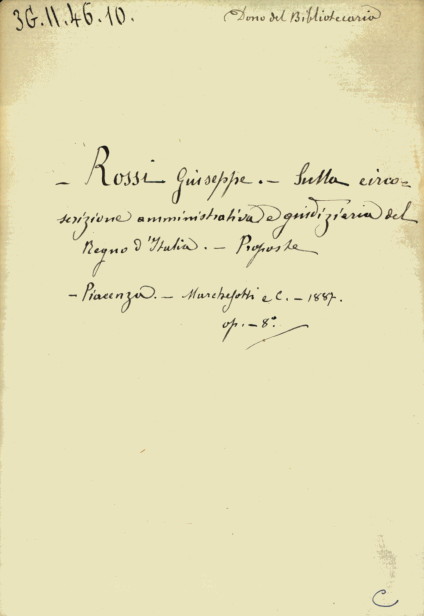 3G.II.46.10.
Dono del Bibliotecario
– Rossi Giuseppe. – Sulla circo=
scrizione amministrativa e giudiziaria del
Regno d'Italia. – Proposte
– Piacenza. – Marchesotti e C. – 1887.
op. – 8°.
C